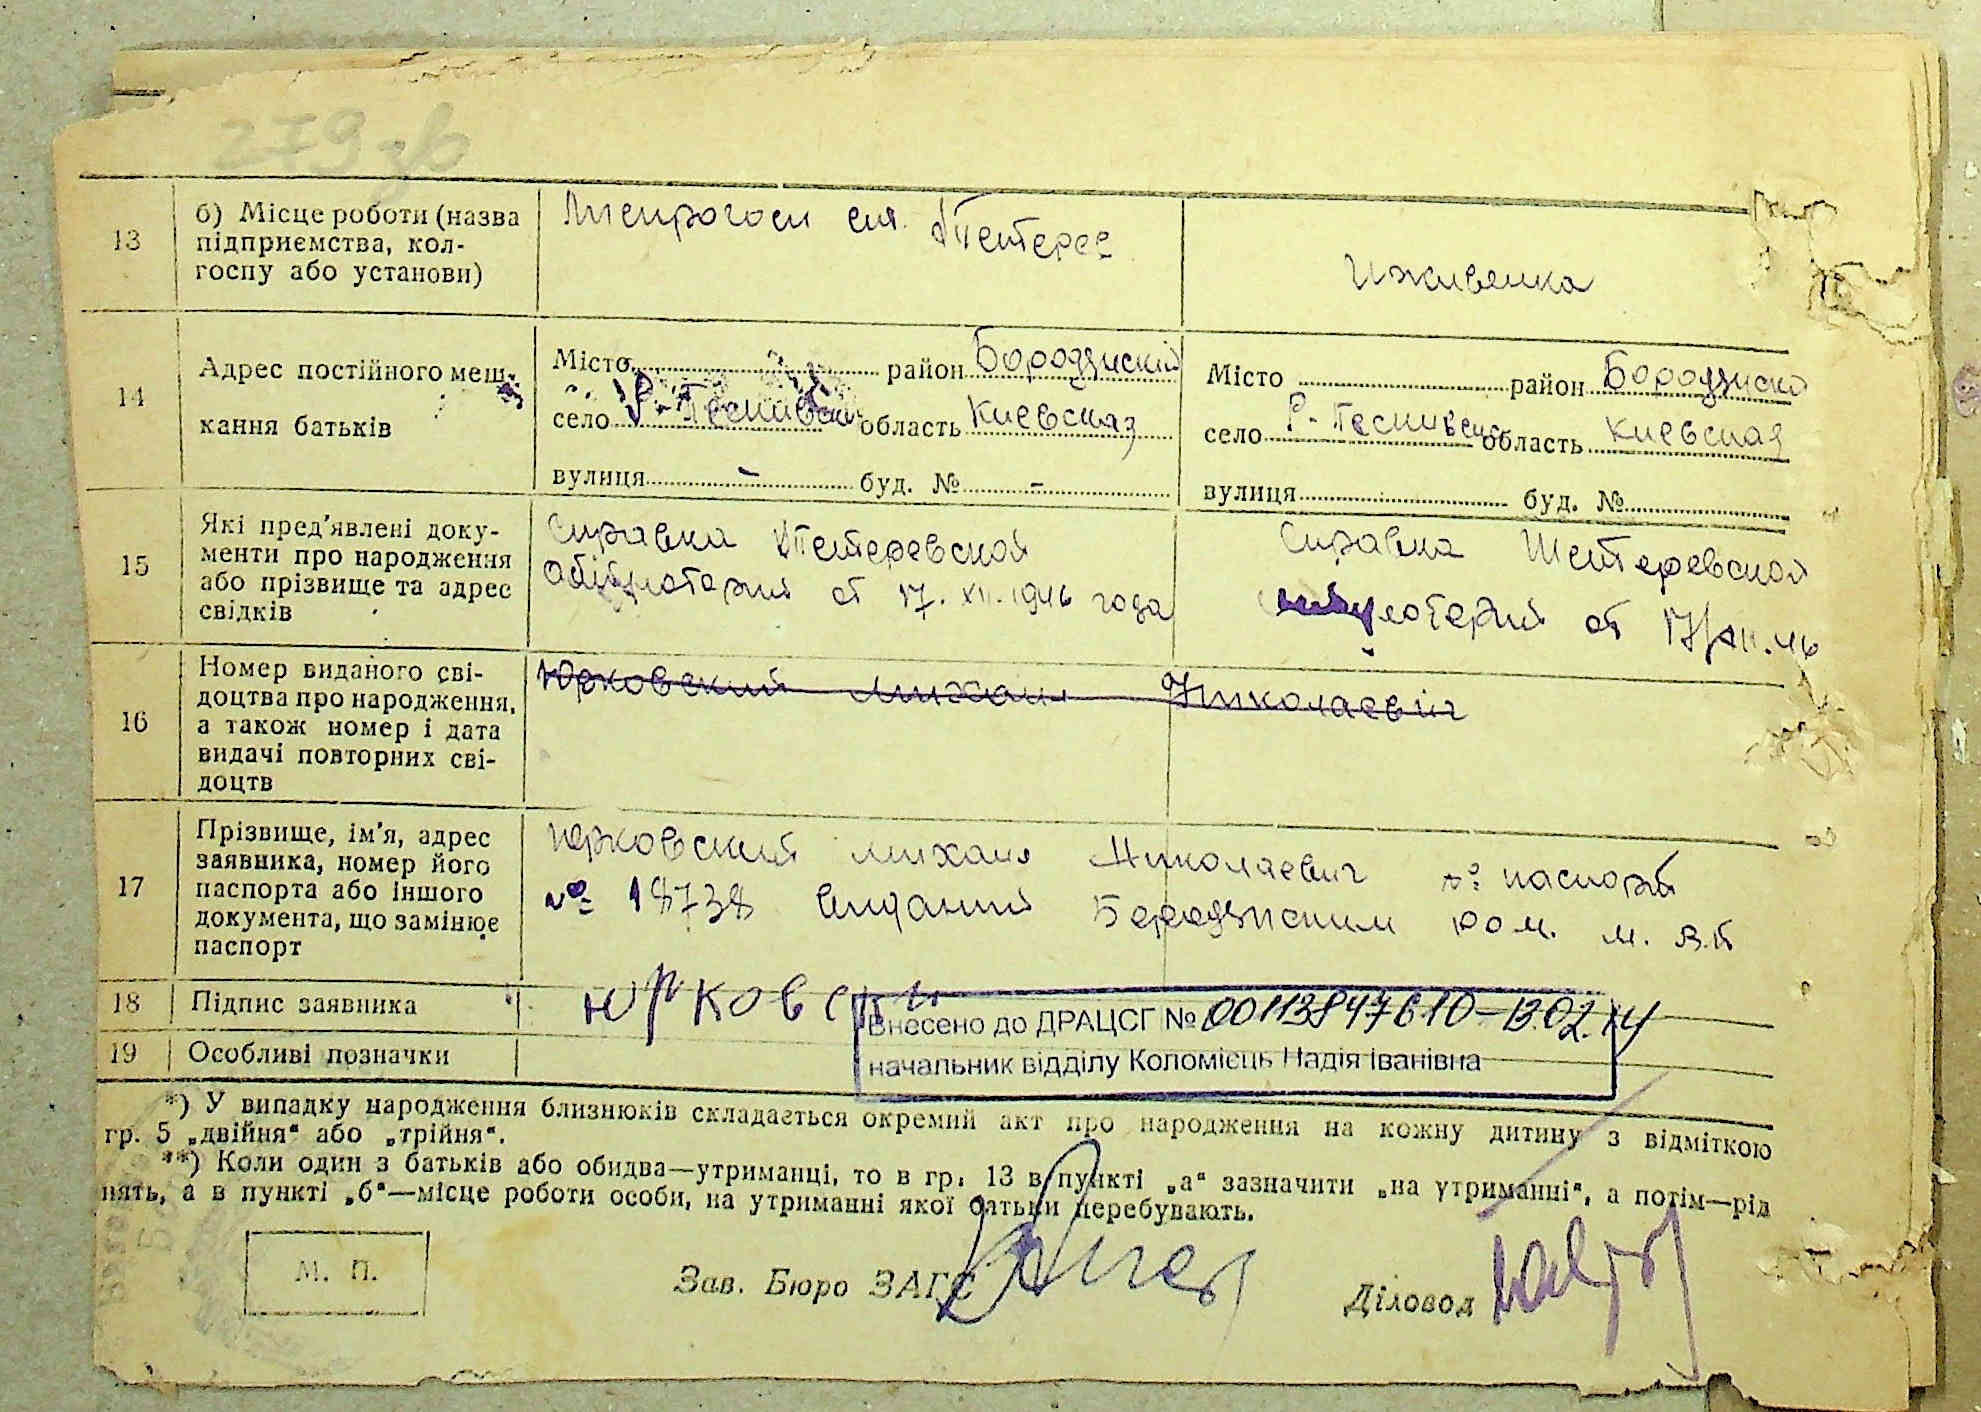 279 зв
13 б) Місце роботи (назва підприємства, кол-госпу або установи) ст. Тетерев Иждивенка
14 Адрес постійного меш-кання батьків
Місто район Бородянский
село Р-ПесковсК область Киевская
вулиця - буд. № -
Місто район Бородянско
село Р-Песк область Киевская
вулиця буд. №
15 Які пред'явлені доку-менти про народження або прізвище та адрес свідків
Справка Тетеревской
от 17.XII.1946 года
Справка Тетеревской
от 17/XII.46
16 Номер виданого сві-доцтва про народження, а також номер і дата видачі повторних сві-доцтв
Юрковский Михаил Николаевич
17 Прізвище, ім'я, адрес заявника, номер його паспорта або іншого документа, що замінює паспорт
Юрковский Михаил Николаевич № паспорт
№ 18738 Бородянским
18 Підпис заявника Юрковски
Внесено до ДРАЦСГ № 00113847610-13.02.14
19 Особливі позначки
начальник відділу Коломієць Надія Іванівна
*) У випадку народження близнюків складається окремий акт про народження на кожну дитину з відміткою
гр. 5 „двійня“ або „трійня“.
**) Коли один з батьків або обидва—утриманці, то в гр. 13 в пункті „а“ зазначити „на утриманні“, а потім—рід
нять, а в пункті „б“—місце роботи особи, на утриманні якої батьки перебувають.
М. П.
Зав. Бюро ЗАГС
Діловод